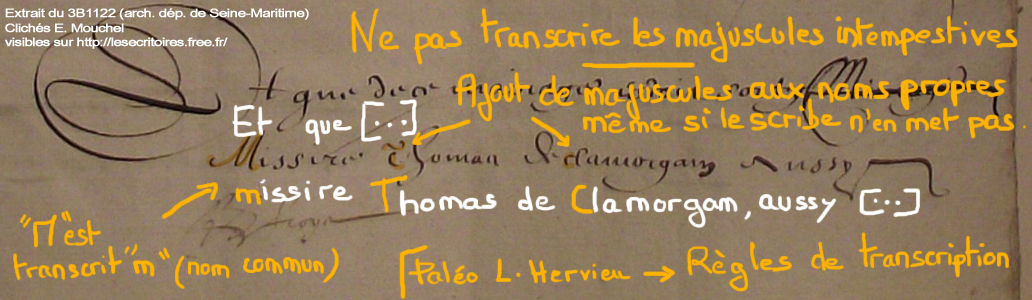 Extrait du 3B1122 (arch. dép. de Seine-Maritime)
Clichés E. Mouchel
visibles sur http://lesecritoires.free.fr/
Ne pas transcrire les majuscules intempestives
Et que
Ajout de majuscules aux noms propres
même si le scribe n'en met pas.
Et que [...]
Missire Thomas de clamorgam Aussy
missire Thomas de Clamorgam, aussy [...]
"M" est
transcrit "m" (nom commun)
Paléo L. Hervieu → Règles de transcription